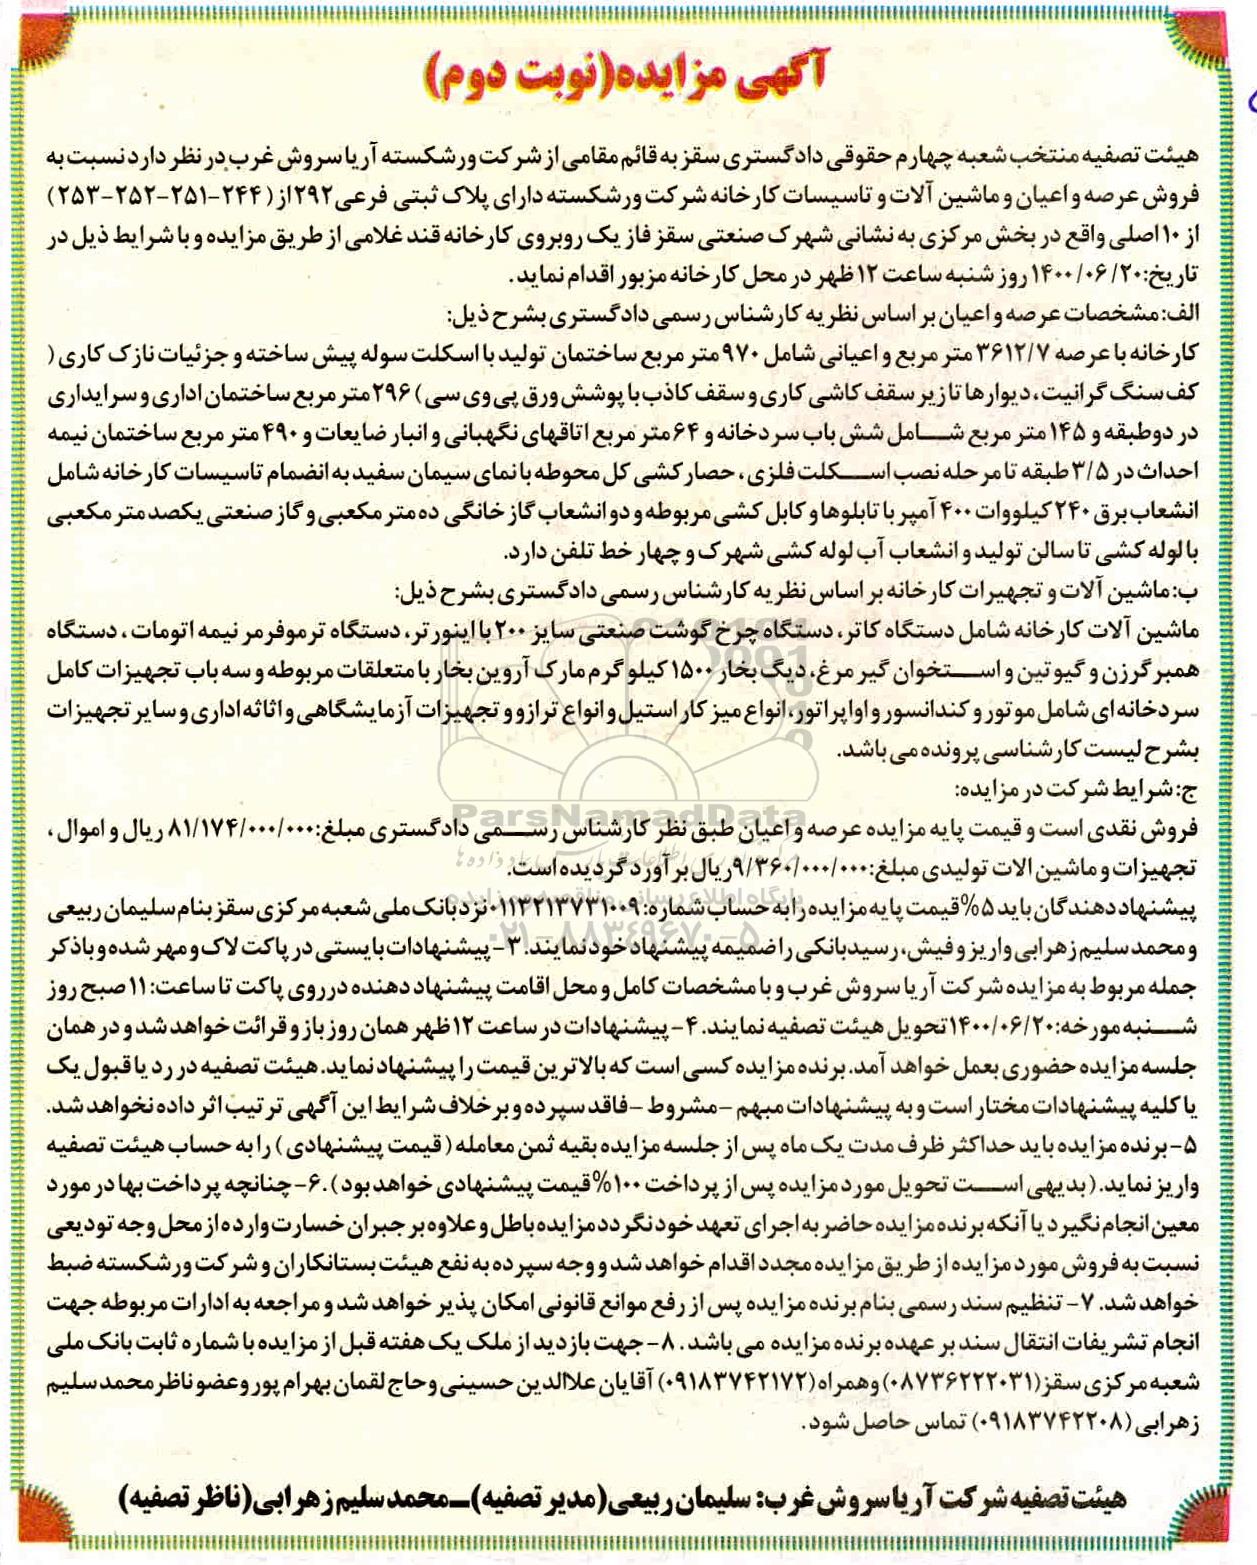 آگهی مزایده(نوبت دوم)
هیئت تصفیه منتخب شعبه چهارم حقوقی دادگستری سقز به قائم مقامی از شرکت ورشکسته آریا سروش غرب در نظر دارد نسبت به
فروش عرصه و اعیان و ماشین آلات و تاسیسات کارخانه شرکت ورشکسته دارای پلاک ثبتی فرعی ۲۹۲از (۲۴۴-۲۵۱-۲۵۲-۲۵۳)
از ۱۰ اصلی واقع در بخش مرکزی به نشانی شهرک صنعتی سقز فاز یک روبروی کارخانه قند غلامی از طریق مزایده و با شرایط ذیل در
تاریخ:۱۴۰۰/۰۶/۲۰ روز شنبه ساعت ۱۲ظهر در محل کارخانه مزبور اقدام نماید.
الف: مشخصات عرصه و اعیان بر اساس نظریه کارشناس رسمی دادگستری بشرح ذیل:
کارخانه با عرصه ۳۶۱۲/۷ متر مربع و اعیانی شامل ۹۷۰ متر مربع ساختمان تولید با اسکلت سوله پیش ساخته و جزئیات نازک کاری (
کف سنگ گرانیت، دیوارها تا زیر سقف کاشی کاری و سقف کاذب با پوشش ورق پی وی سی) ۲۹۶ متر مربع ساختمان اداری و سرایداری
در دوطبقه و ۱۴۵ متر مربع شامل شش باب سردخانه و ۶۴ متر مربع اتاقهای نگهبانی و انبار ضایعات و ۴۹۰ متر مربع ساختمان نیمه
احداث در ۳/۵ طبقه تا مرحله نصب اسکلت فلزی، حصارکشی کل محوطه با نمای سیمان سفید به انضمام تاسیسات کارخانه شامل
انشعاب برق ۲۴۰ کیلووات ۴۰۰ آمپر با تابلوها و کابل کشی مربوطه و دو انشعاب گاز خانگی ده متر مکعبی و گاز صنعتی یکصد متر مکعبی
با لوله کشی تا سالن تولید و انشعاب آب لوله کشی شهرک و چهار خط تلفن دارد.
ب: ماشین آلات و تجهیزات کارخانه بر اساس نظریه کارشناس رسمی دادگستری بشرح ذیل:
ماشین آلات کارخانه شامل دستگاه کاتر، دستگاه چرخ گوشت صنعتی سایز ۲۰۰ با اینورتر، دستگاه ترموفرمر نیمه اتومات، دستگاه
همبرگرزن و گیوتین و استخوان گیر مرغ، دیگ بخار ۱۵۰۰ کیلوگرم مارک آروین بخار با متعلقات مربوطه و سه باب تجهیزات کامل
سردخانه ای شامل موتور و کندانسور و اواپراتور، انواع میز کار استیل و انواع ترازو و تجهیزات آزمایشگاهی و اثاثه اداری و سایر تجهیزات
بشرح لیست کارشناسی پرونده می باشد.
ج: شرایط شرکت در مزایده:
فروش نقدی است و قیمت پایه مزایده عرصه و اعیان طبق نظر کارشناس رسمی دادگستری مبلغ:۸۱/۱۷۴/۰۰۰/۰۰۰ ریال و اموال،
تجهیزات و ماشین الات تولیدی مبلغ:۹/۳۶۰/۰۰۰/۰۰۰ریال برآورد گردیده است.
پیشنهاد دهندگان باید ۵%قیمت پایه مزایده را به حساب شماره:۰۱۱۳۲۱۳۷۳۱۰۰۹نزد بانک ملی شعبه مرکزی سقز بنام سلیمان ربیعی
و محمد سلیم زهرابی واریز و فیش، رسید بانکی را ضمیمه پیشنهاد خود نمایند. ۳-پیشنهادات بایستی در پاکت لاک و مهر شده و باذکر
جمله مربوط به مزایده شرکت آریا سروش غرب و با مشخصات کامل و محل اقامت پیشنهاد دهنده در روی پاکت تا ساعت: ۱۱ صبح روز
شنبه مورخه:۱۴۰۰/۰۶/۲۰تحویل هیئت تصفیه نمایند. ۴-پیشنهادات در ساعت ۱۲ ظهر همان روز باز و قرائت خواهد شد و در همان
جلسه مزایده حضوری بعمل خواهد آمد. برنده مزایده کسی است که بالاترین قیمت را پیشنهاد نماید. هیئت تصفیه در رد یا قبول یک
یا کلیه پیشنهادات مختار است و به پیشنهادات مبهم –مشروط –فاقد سپرده و بر خلاف شرایط این آگهی ترتیب اثر داده نخواهد شد.
۵-برنده مزایده باید حداکثر ظرف مدت یک ماه پس از جلسه مزایده بقیه ثمن معامله (قیمت پیشنهادی) را به حساب هیئت تصفیه
واریز نماید.(بدیهی است تحویل مورد مزایده پس از پرداخت ۱۰۰%قیمت پیشنهادی خواهد بود). ۶-چنانچه پرداخت بها در مورد
معین انجام نگیرد یا آنکه برنده مزایده حاضر به اجرای تعهد خود نگردد مزایده باطل و علاوه بر جبران خسارت وارده از محل وجه تودیعی
نسبت به فروش مورد مزایده از طریق مزایده مجدد اقدام خواهد شد و وجه سپرده به نفع هیئت بستانکاران و شرکت ورشکسته ضبط
خواهد شد. ۷-تنظیم سند رسمی بنام برنده مزایده پس از رفع موانع قانونی امکان پذیر خواهد شد و مراجعه به ادارات مربوطه جهت
انجام تشریفات انتقال سند بر عهده برنده مزایده می باشد. ۸-جهت بازدید از ملک یک هفته قبل از مزایده با شماره ثابت بانک ملی
شعبه مرکزی سقز(۰۸۷۳۶۲۲۲۰۳۱) و همراه (۰۹۱۸۳۷۴۲۱۷۲) آقایان علاالدین حسینی و حاج لقمان بهرام پور و عضو ناظر محمد سلیم
زهرابی (۰۹۱۸۳۷۴۲۲۰۸) تماس حاصل شود.
هیئت تصفیه شرکت آریا سروش غرب: سلیمان ربیعی (مدیر تصفیه)ـ محمد سلیم زهرابی(ناظر تصفیه)
ParsNamadData
پایگاه اطلاع رسانی مناقصه و مزایده
۰۲۱-۸۸۳۴۹۶۷۰-۵